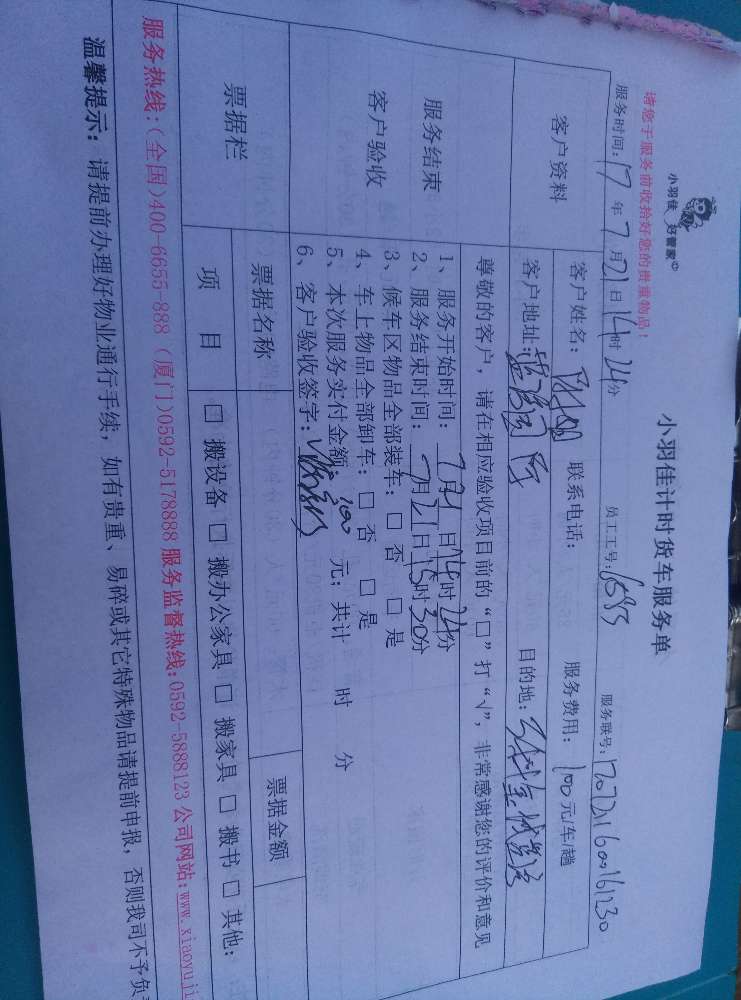 小羽佳 好管家
小羽佳计时货车服务单
请您于服务前收拾好您的贵重物品！
服务时间：17年7月21日14时24分 员工工号： 服务联号：
客户资料
客户姓名： 联系电话： 服务费用：100元/车/趟
客户地址： 目的地：
服务结束
客户验收
尊敬的客户，请在相应验收项目前的“□”打“√”，非常感谢您的评价和意见
1、服务开始时间：7月21日14时24分
2、服务结束时间：7月21日15时30分
3、候车区物品全部装车：□ 否 □ 是
4、车上物品全部卸车：□ 否 □ 是
5、本次服务实付金额：100 元；共计 时 分
6、客户验收签字：
票据栏
票据名称 票据金额
项 目 □ 搬设备 □ 搬办公家具 □ 搬家具 □ 搬书 □ 其他：
服务热线：(全国)400-6655-888 (厦门)0592-5178888 服务监督热线：0592-5888123 公司网站：www.xiaoyuji
温馨提示：请提前办理好物业通行手续，如有贵重、易碎或其它特殊物品请提前申报，否则我司不予负